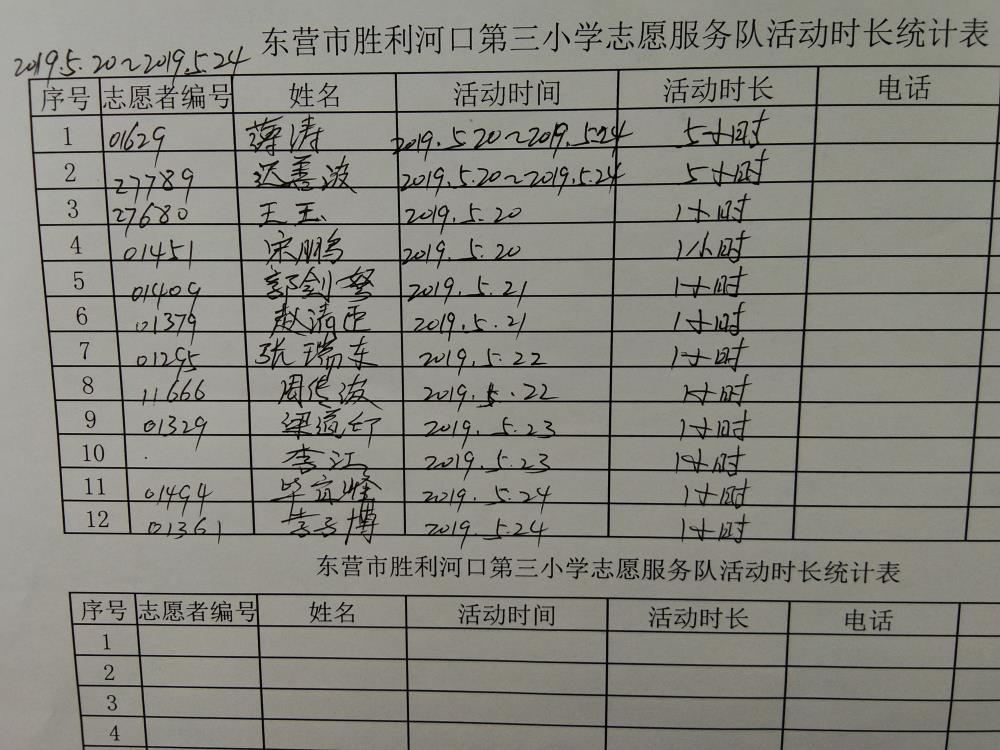 东营市胜利河口第三小学志愿服务队活动时长统计表
2019.5.20~2019.5.24
序号 志愿者编号 姓名 活动时间 活动时长 电话
1 01629 薛涛 2019.5.20~2019.5.24 5小时
2 27789 迟善波 2019.5.20~2019.5.24 5小时
3 27680 王玉 2019.5.20 1小时
4 01451 宋鹏 2019.5.20 1小时
5 01409 郭剑 2019.5.21 1小时
6 01379 赵清臣 2019.5.21 1小时
7 01295 张瑞东 2019.5.22 1小时
8 11666 周传波 2019.5.22 1小时
9 01329 梁 2019.5.23 1小时
10 李江 2019.5.23 1小时
11 01494 毕 峰 2019.5.24 1小时
12 01361 博 2019.5.24 1小时
东营市胜利河口第三小学志愿服务队活动时长统计表
序号 志愿者编号 姓名 活动时间 活动时长 电话
1
2
3
4